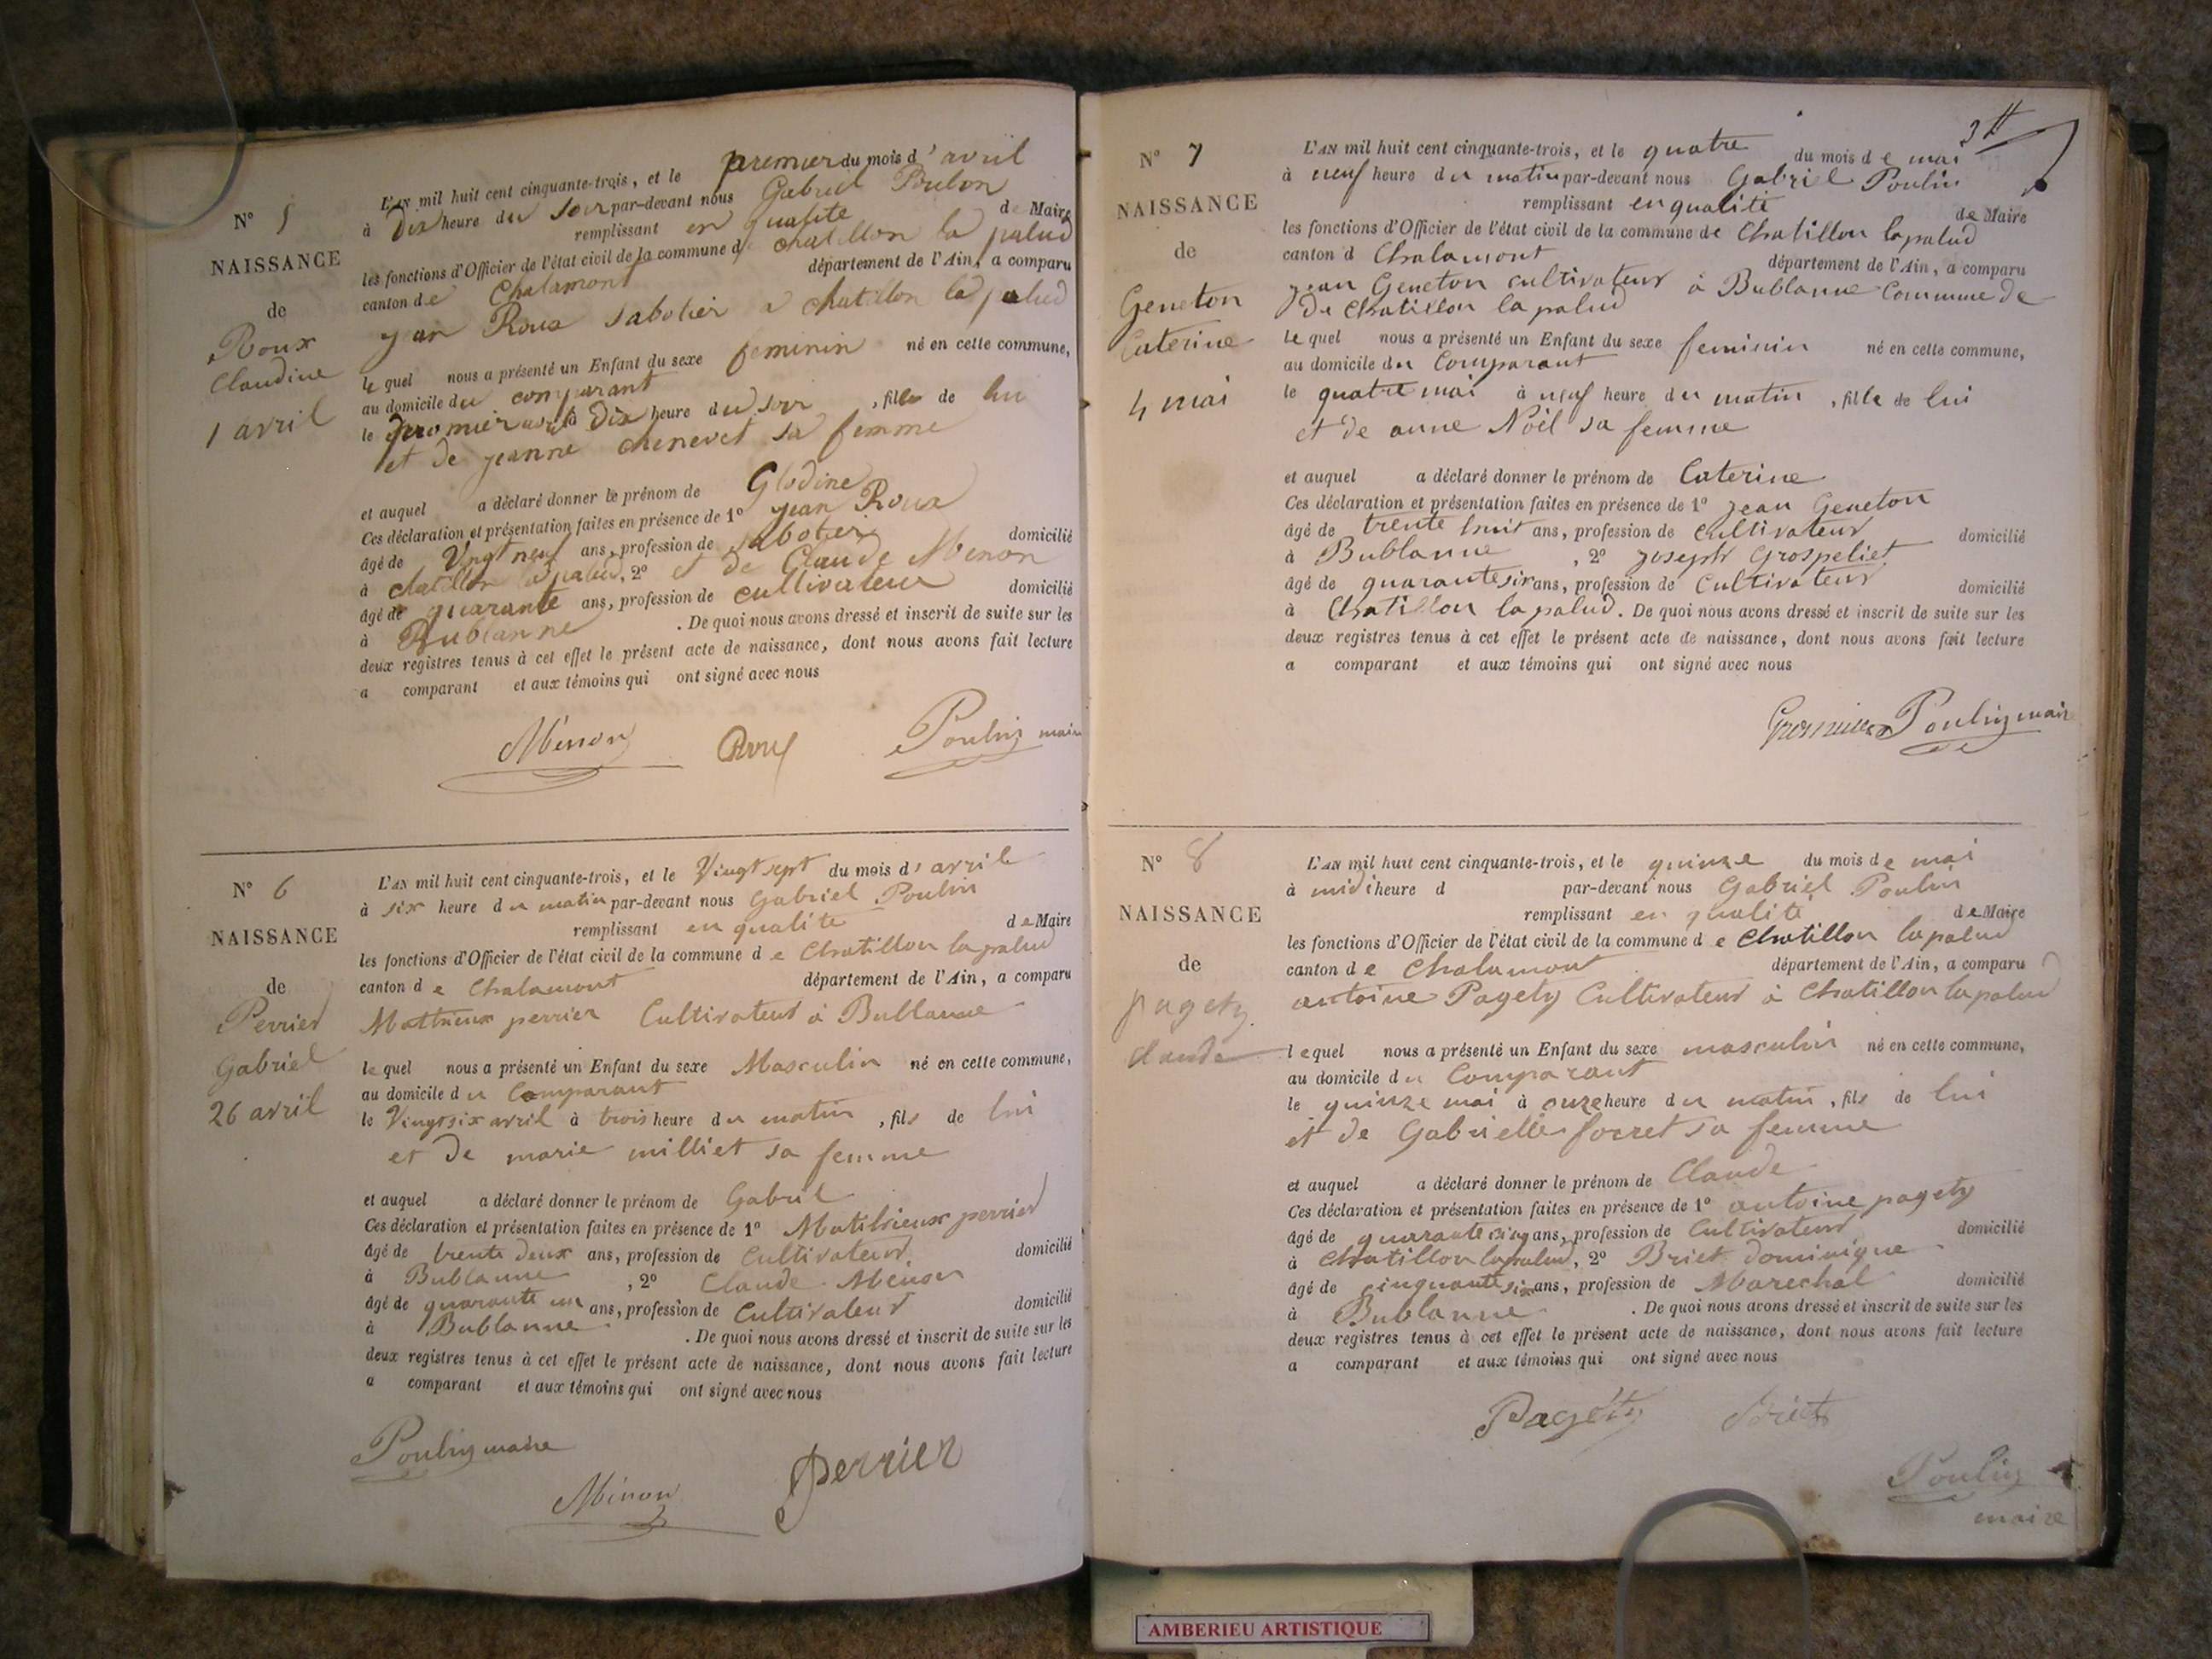 N° 5
NAISSANCE
de
Roux
Claudine
1 avril
L'AN mil huit cent cinquante-trois, et le premier du mois d'avril
à Dix heure du soir par-devant nous Gabriel Poulon
remplissant en qualité de Maire
les fonctions d'Officier de l'état civil de la commune de chatillon la palud
canton de Chalamont département de l'Ain, a comparu
jean Roux sabotier a chatillon la palud
lequel nous a présenté un Enfant du sexe feminin né en cette commune,
au domicile du comparant
le premier avril à Dix heure du soir, fille de lui
et de jeanne chenevet sa femme
et auquel a déclaré donner le prénom de Glodine
Ces déclaration et présentation faites en présence de 1° jean Roux
âgé de Vingt neuf ans, profession de sabotier domicilié
à chatillon la palud, 2° et de Claude Menon
âgé de quarante ans, profession de cultivateur domicilié
à Bublanne. De quoi nous avons dressé et inscrit de suite sur les
deux registres tenus à cet effet le présent acte de naissance, dont nous avons fait lecture
a comparant et aux témoins qui ont signé avec nous
Menon Poulin maire
N° 6
NAISSANCE
de
Perrier
Gabriel
26 avril
L'AN mil huit cent cinquante-trois, et le Vingt sept du mois d'avrile
à six heure du matin par-devant nous Gabriel Poulin
remplissant en qualité de Maire
les fonctions d'Officier de l'état civil de la commune de Chatillon la palud
canton de Chalamont département de l'Ain, a comparu
Mathieux perrier Cultivateur à Bublanne
lequel nous a présenté un Enfant du sexe Masculin né en cette commune,
au domicile du Comparant
le Vingt six avril à trois heure du matin, fils de lui
et de marie milliet sa femme
et auquel a déclaré donner le prénom de Gabriel
Ces déclaration et présentation faites en présence de 1° Mathieux perrier
âgé de trente deux ans, profession de Cultivateur domicilié
à Bublanne, 2° Claude Menon
âgé de quarante un ans, profession de Cultivateur domicilié
à Bublanne. De quoi nous avons dressé et inscrit de suite sur les
deux registres tenus à cet effet le présent acte de naissance, dont nous avons fait lecture
a comparant et aux témoins qui ont signé avec nous
Poulin maire
Menon perrier
N° 7
NAISSANCE
de
Geneton
Caterine
4 mai
L'AN mil huit cent cinquante-trois, et le quatre du mois de mai
à neuf heure du matin par-devant nous Gabriel Poulin
remplissant en qualité de Maire
les fonctions d'Officier de l'état civil de la commune de Chatillon la palud
canton d Chalamont département de l'Ain, a comparu
jean Geneton cultivateur à Bublanne Commune de
De Chatillon la palud
lequel nous a présenté un Enfant du sexe feminin né en cette commune,
au domicile du Comparant
le quatre mai à neuf heure du matin, fille de lui
et de anne Noël sa femme
et auquel a déclaré donner le prénom de Caterine
Ces déclaration et présentation faites en présence de 1° jean Geneton
âgé de trente huit ans, profession de Cultivateur domicilié
à Bublanne, 2° joseph Grospeliet
âgé de quarante six ans, profession de Cultivateur domicilié
à Chatillon la palud. De quoi nous avons dressé et inscrit de suite sur les
deux registres tenus à cet effet le présent acte de naissance, dont nous avons fait lecture
a comparant et aux témoins qui ont signé avec nous
Poulin maire
N° 8
NAISSANCE
de
pagety
claude
L'AN mil huit cent cinquante-trois, et le quinze du mois de mai
à midi heure d par-devant nous Gabriel Poulin
remplissant en qualité de Maire
les fonctions d'Officier de l'état civil de la commune de Chatillon la palud
canton de Chalamont département de l'Ain, a comparu
antoine Pagety Cultivateur à Chatillon la palud
lequel nous a présenté un Enfant du sexe masculin né en cette commune,
au domicile du Comparant
le quinze mai à onze heure du matin, fils de lui
et de Gabrielle forret sa femme
et auquel a déclaré donner le prénom de Claude
Ces déclaration et présentation faites en présence de 1° antoine pagety
âgé de quarante cinq ans, profession de Cultivateur domicilié
à Chatillon la palud, 2° Briet dominique
âgé de cinquante six ans, profession de Marechal domicilié
à Bublanne. De quoi nous avons dressé et inscrit de suite sur les
deux registres tenus à cet effet le présent acte de naissance, dont nous avons fait lecture
a comparant et aux témoins qui ont signé avec nous
Pagety Briet
Poulin
maire
AMBERIEU ARTISTIQUE